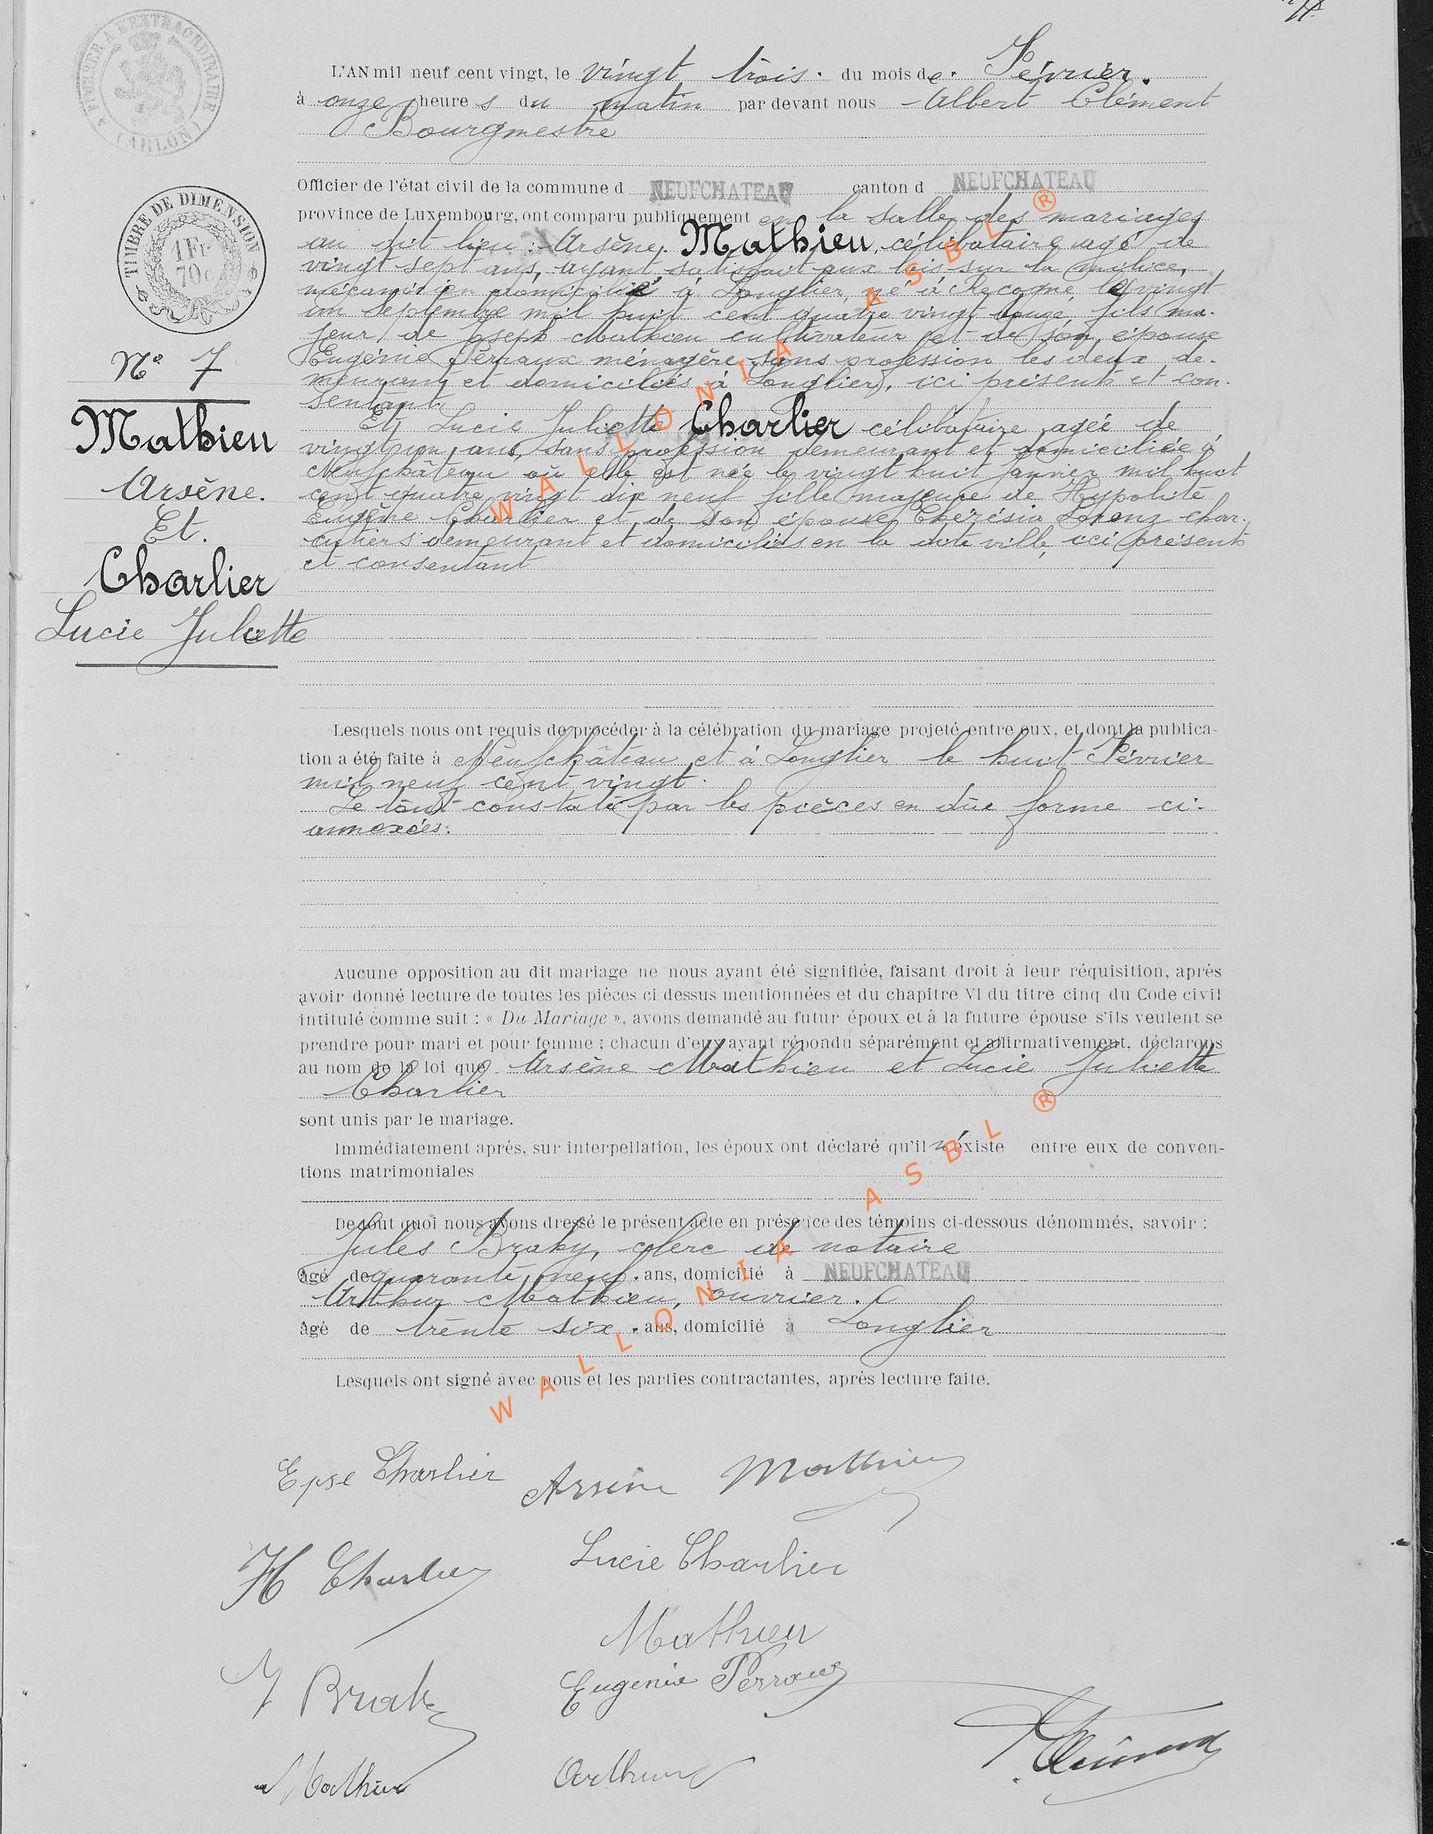 TIMBRE A L'EXTRAORDINAIRE
ARLON
TIMBRE DE DIMENSION
1 Fr
70c
N° 7
Mathieu
Arsène.
Et.
Charlier
Lucie Juliette
L'AN mil neuf cent vingt, le vingt trois. du mois de. Février.
à onze heures du matin par devant nous Albert Clément
Bourgmestre
Officier de l'état civil de la commune d NEUFCHATEAU canton d NEUFCHATEAU
province de Luxembourg, ont comparu publiquement en la salle des mariages
au dit lieu : Arsène, Mathieu, célibataire agé de
vingt sept ans, ayant satisfait aux lois sur la milice,
mécanicien domicilié à Longlier, né à Recogne, le vingt
un Septembre mil huit cent quatre vingt douze, fils ma-
jeur de Joseph Mathieu cultivateur et de son épouse
Eugénie Perraux ménagère sans profession les deux de-
meurant et domiciliés à Longlier, ici présents et con-
sentants
Et Lucie Juliette Charlier célibataire agée de
vingt un ans, sans profession demeurant et domiciliée à
Neufchâteau où elle est née le vingt huit Janvier mil huit
cent quatre vingt dix neuf fille majeure de Hypolite
Eugène Charlier et de son épouse Thérésia Lorenz char-
cutiers demeurant et domiciliés en la dite ville, ici présents
et consentant
Lesquels nous ont requis de procéder à la célébration du mariage projeté entre eux, et dont la publica-
tion a été faite à Neufchâteau et à Longlier le huit Février
mil neuf cent vingt.
Le tout constaté par les pièces en dûe forme ci-
annexées.
Aucune opposition au dit mariage ne nous ayant été signifiée, faisant droit à leur réquisition, après
avoir donné lecture de toutes les pièces ci dessus mentionnées et du chapitre VI du titre cinq du Code civil
intitulé comme suit : « Du Mariage », avons demandé au futur époux et à la future épouse s'ils veulent se
prendre pour mari et pour femme ; chacun d'eux ayant répondu séparément et affirmativement, déclarons
au nom de la loi que Arsène Mathieu et Lucie Juliette
Charlier
sont unis par le mariage.
Immédiatement après, sur interpellation, les époux ont déclaré qu'il n'éxiste entre eux de conven-
tions matrimoniales
De tout quoi nous avons dressé le présent acte en présence des témoins ci-dessous dénommés, savoir :
Jules Braky, clerc de notaire
âgé de quarante neuf. ans, domicilié à NEUFCHATEAU
Arthur Mathieu, ouvrier.
âgé de trente six. ans, domicilié à Longlier
Lesquels ont signé avec nous et les parties contractantes, après lecture faite.
Epse Charlier Arsène Mathieu
H Charlier Lucie Charlier
Mathieu
J Braky Eugenie Perraux
Clément
Mathieu Arthur
WALLONIA ASBL ®
WALLONIA ASBL ®